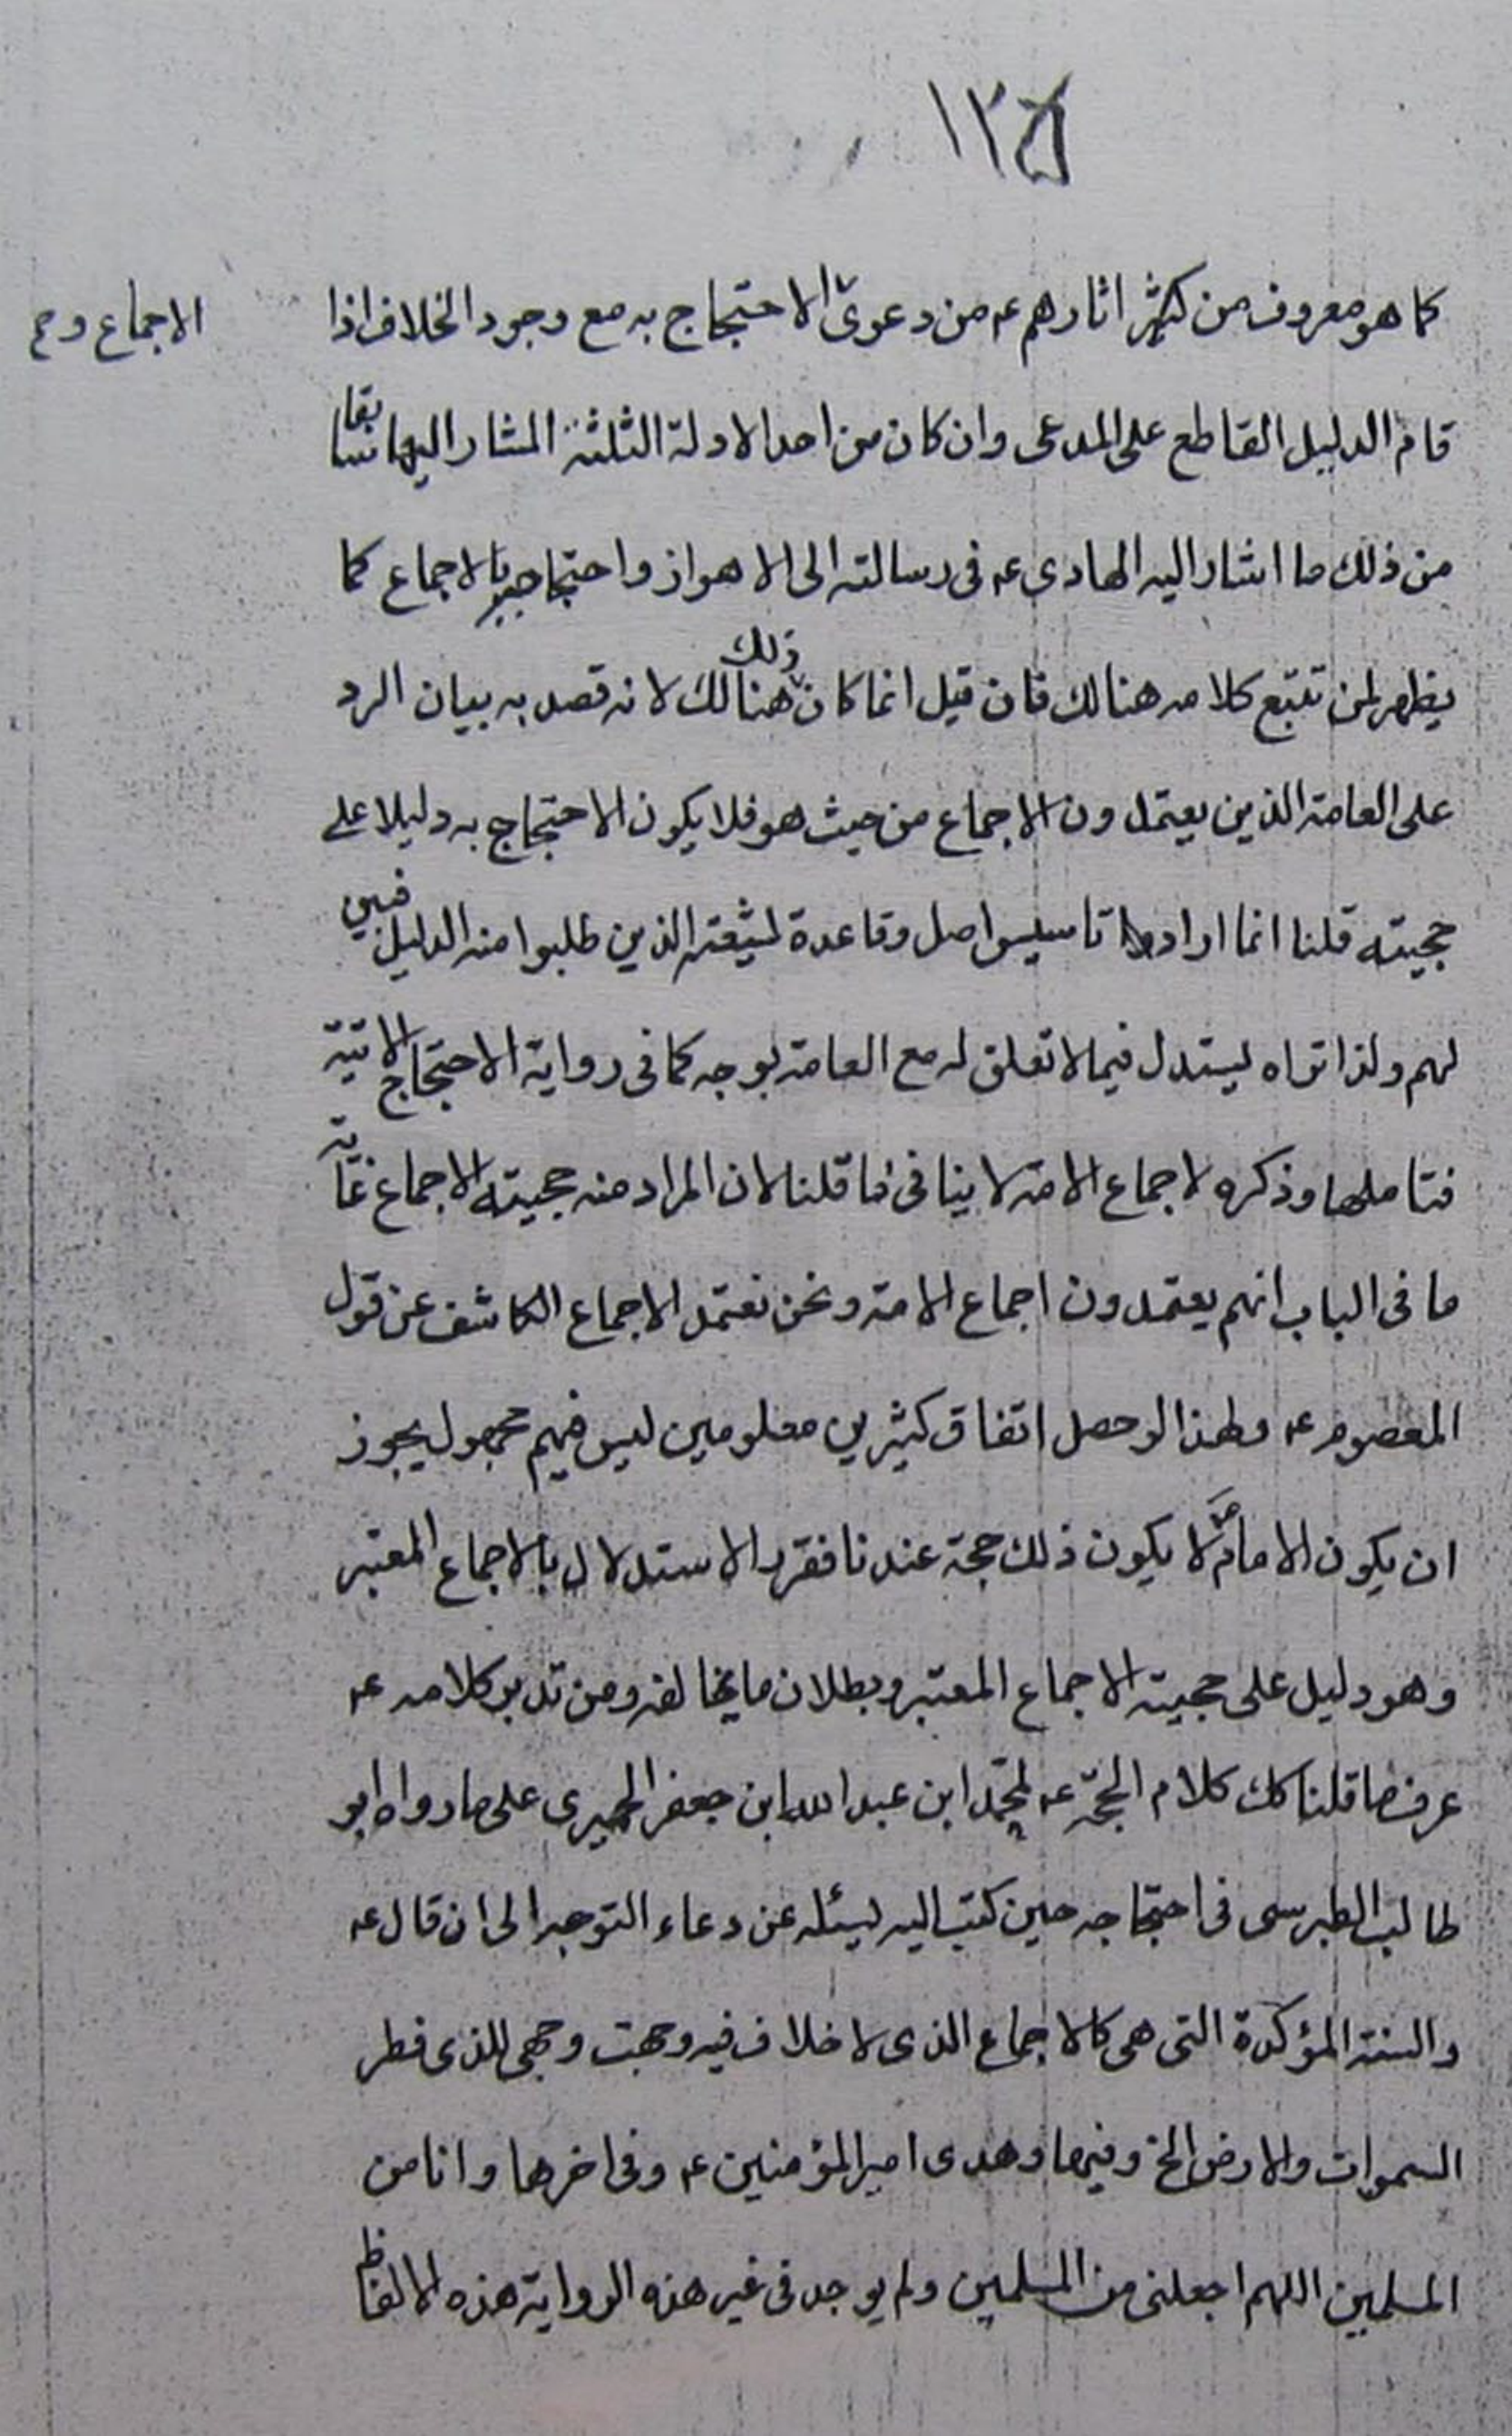 ١٢٥
كما هو معروف من كثير اثارهم ع من دعوى الاحتجاج به مع وجود الخلاف اذا
الاجماع و ح
قام الدليل القاطع على المدعى وان كان من احد الادلة الثلثة المشار اليها سابقا
من ذلك ما اشار اليه الهادى ع فى رسالته الى الاهواز واحتجاجه بالاجماع كما
يظهر لمن تتبع كلامه هنالك فان قيل انما كان ذلك هنالك لانه قصد به بيان الرد
على العامة الذين يعتمدون الاجماع من حيث هو فلا يكون الاحتجاج به دليلا على
حجيته قلنا انما اراد تاسيس اصل وقاعدة لشيعته الذين طلبوا منه الدليل فبين
لهم ولذا تراه يستدل فيما لا تعلق له مع العامة بوجه كما فى رواية الاحتجاج الاتية
فتاملها وذكره لاجماع الامة لا ينافى ما قلنا لان المراد منه حجية الاجماع غاية
ما فى الباب انهم يعتمدون اجماع الامة ونحن نعتمد الاجماع الكاشف عن قول
المعصوم ع ولهذا لو حصل اتفاق كثيرين معلومين ليس فيهم مجهول يجوز
ان يكون الامام لا يكون ذلك حجة عندنا فقرر الاستدلال بالاجماع المعتبر
وهو دليل على حجية الاجماع المعتبر وبطلان ما يخالفه ومن تدبر كلامه ع
عرف ما قلنا كك كلام الحجة ع لمحمد ابن عبد الله ابن جعفر الحميرى على ما رواه ابو
طالب الطبرسى فى احتجاجه حين كتب اليه يسئله عن دعاء التوجه الى ان قال ع
والسنة المؤكدة التى هى كالاجماع الذى لا خلاف فيه وجهت وجهى للذى فطر
السموات والارض الخ وفيها وهدى امير المؤمنين ع وفى اخرها وانا من
المسلمين اللهم اجعلنى من المسلمين ولم يوجد فى غير هذه الرواية هذه الالفاظ